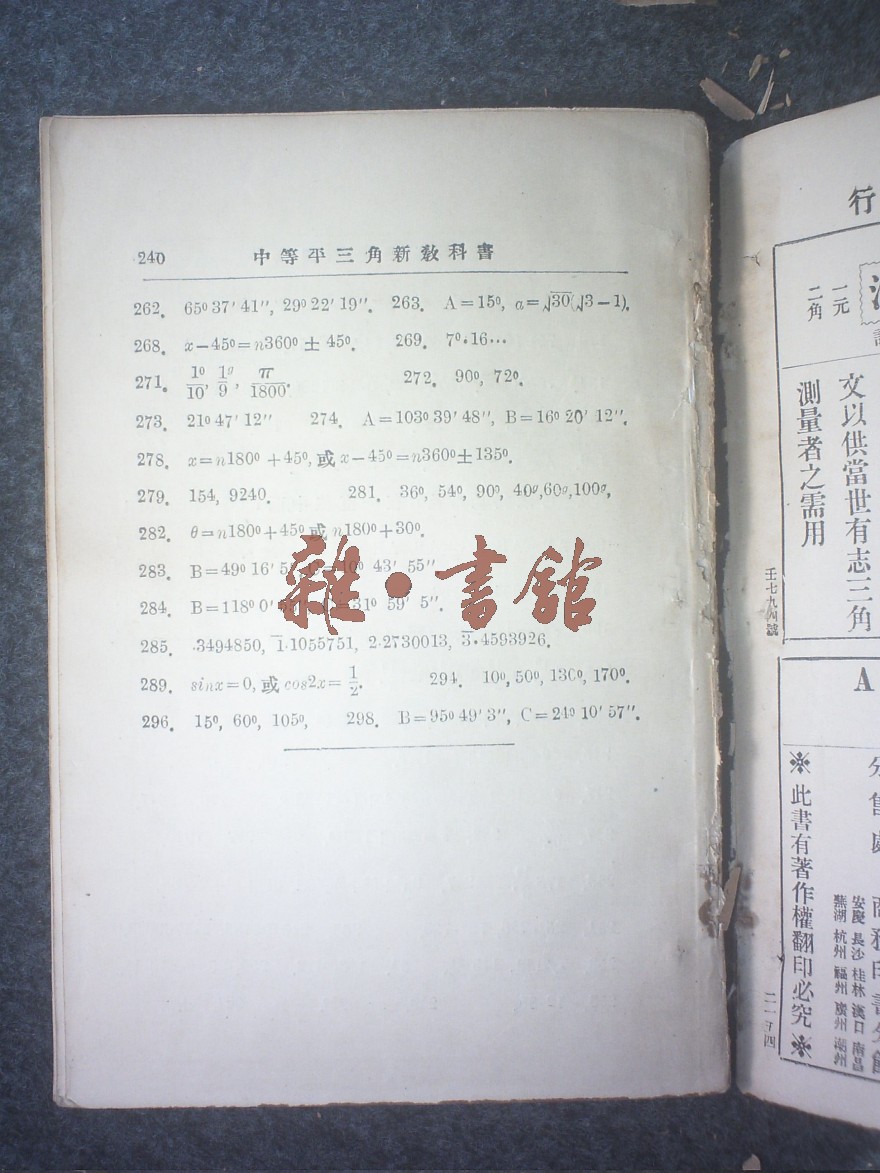 240 中等平三角新敎科書
262. 65° 37′ 41″, 29° 22′ 19″. 263. A=15°, a=√30(√3−1).
268. x−45°=n360° ± 45°. 269. 7°·16···
271. 1°/10, 1ᵍ/9, π/1800. 272. 90°, 72°.
273. 21° 47′ 12″ 274. A=103° 39′ 48″, B=16° 20′ 12″.
278. x=n180° +45°, 或 x−45°=n360°±135°.
279. 154, 9240. 281. 36°, 54°, 90°, 40ᵍ,60ᵍ,100ᵍ,
282. θ=n180°+45° 或 n180°+30°.
283. B=49° 16′ 43′ 55″
284. B=118° 0′ 31° 59′ 5″.
285. ·3494850, 1̅·1055751, 2·2730013, 3̅·4593926.
289. sinx=0, 或 cos2x= 1/2. 294. 10°, 50°, 130°, 170°.
296. 15°, 60°, 105°, 298. B=95° 49′ 3″, C=24° 10′ 57″.
雜·書館
行
一元
二角
文以供當世有志三角
測量者之需用
壬七九四號
A
分售處
商務印書分館
安慶 長沙 桂林 漢口 南昌
蕪湖 杭州 福州 廣州 潮州
※此書有著作權翻印必究※